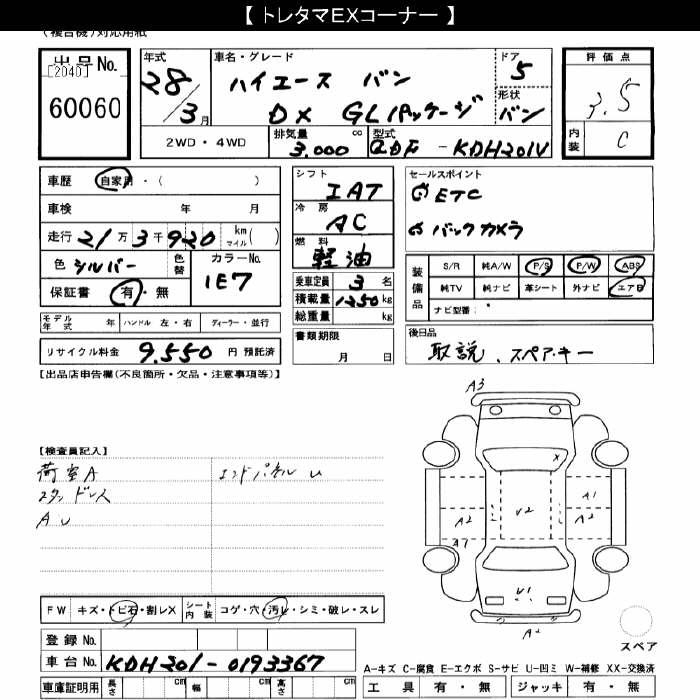 【 トレタマEXコーナー 】
(複合機)対応用紙
出品No.
[2040]
60060
年式
28/3月
車名・グレード
ハイエース バン
DX GLパッケージ
ドア
5
形状
バン
評価点
3.5
内装
C
2WD・4WD
排気量
3.000 cc
型式
QDF-KDH201V
車歴 自家用・( )
車検 年 月
走行 21万3千920 km マイル( )
色 シルバー 色替
カラーNo.
1E7
保証書 有・無
モデル年式 年 ハンドル 左・右 ディーラー・並行
リサイクル料金 9.550 円 預託済
シフト
IAT
冷房
AC
燃料
軽油
乗車定員 3 名
積載量 1250 kg
総重量 kg
書類期限
月 日
セールスポイント
ETC
バックカメラ
装備品
S/R 純A/W P/S P/W ABS
純TV 純ナビ 革シート 外ナビ エアB
ナビ型番:
後日品
取説、スペアキー
【出品店申告欄(不良箇所・欠品・注意事項等)】
【検査員記入】
荷室A
エンドパネル U
スタンドレス
A U
A3
A1
A2
V2
A2
A1
V1
A2
スペア
FW キズ・トビ石・割レX
シート内装 コゲ・穴・汚レ・シミ・破レ・スレ
登録No.
車台No. KDH201-0193367
車庫証明用 長さ cm 幅 cm 高さ cm
A-キズ C-腐食 E-エクボ S-サビ U-凹ミ W-補修 XX-交換済
工具 有・無 ジャッキ 有・無